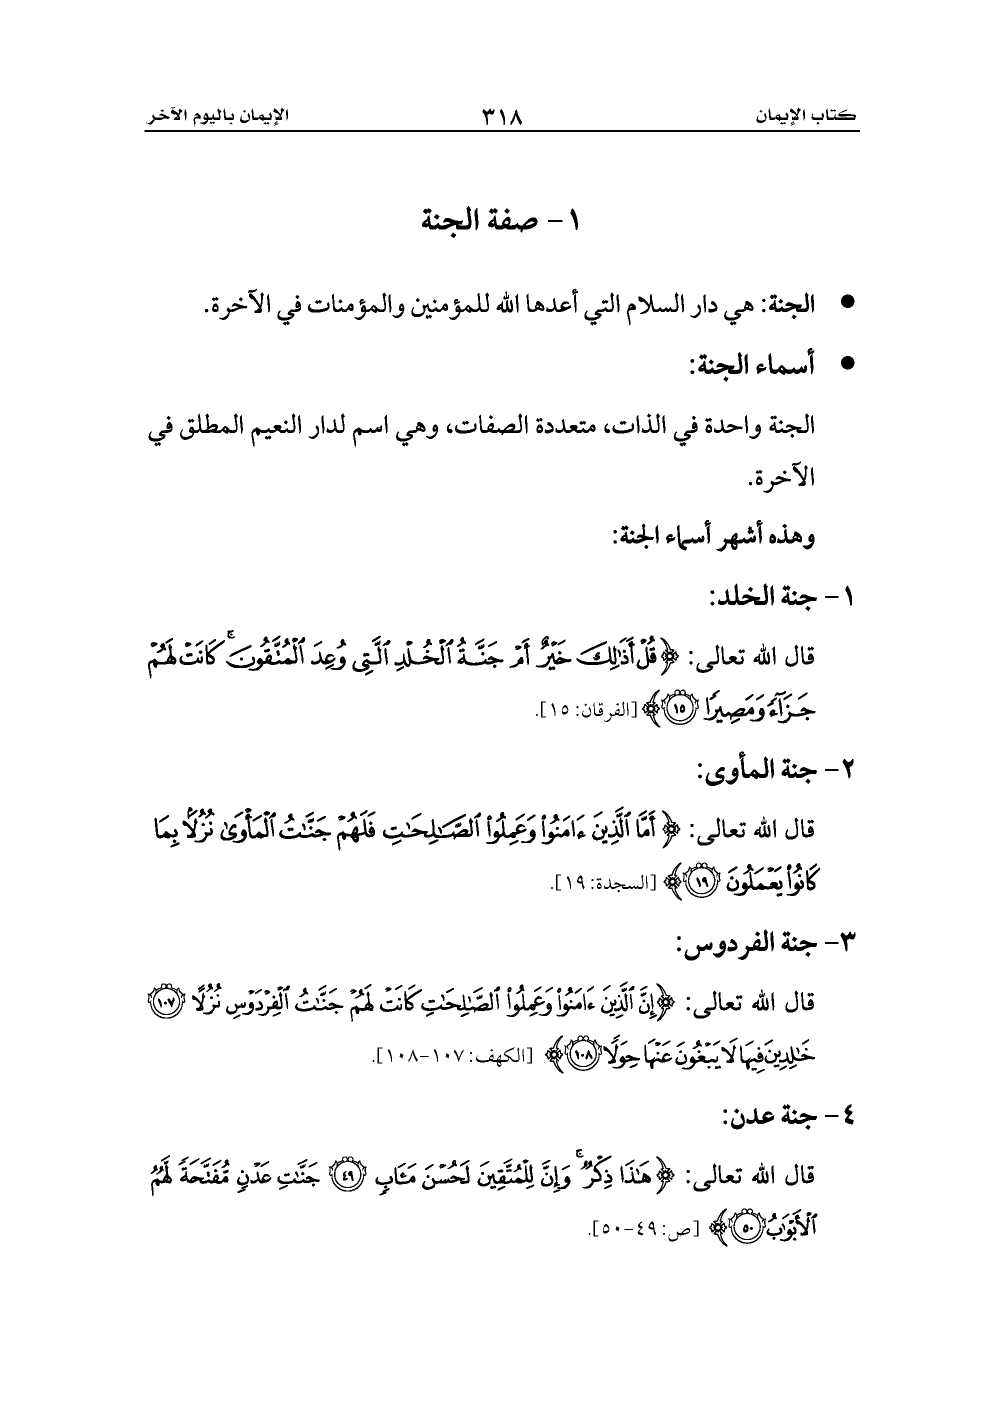 كتاب الإيمان ٣١٨ الإيمان باليوم الآخر
١- صفة الجنة
● الجنة: هي دار السلام التي أعدها الله للمؤمنين والمؤمنات في الآخرة.
● أسماء الجنة:
الجنة واحدة في الذات، متعددة الصفات، وهي اسم لدار النعيم المطلق في
الآخرة.
وهذه أشهر أسماء الجنة:
١- جنة الخلد:
قال الله تعالى: ﴿قُلْ أَذَٰلِكَ خَيْرٌ أَمْ جَنَّةُ ٱلْخُلْدِ ٱلَّتِى وُعِدَ ٱلْمُتَّقُونَ ۚ كَانَتْ لَهُمْ
جَزَآءً وَمَصِيرًا ١٥﴾ [الفرقان: ١٥].
٢- جنة المأوى:
قال الله تعالى: ﴿أَمَّا ٱلَّذِينَ ءَامَنُوا۟ وَعَمِلُوا۟ ٱلصَّـٰلِحَـٰتِ فَلَهُمْ جَنَّـٰتُ ٱلْمَأْوَىٰ نُزُلًۢا بِمَا
كَانُوا۟ يَعْمَلُونَ ١٩﴾ [السجدة: ١٩].
٣- جنة الفردوس:
قال الله تعالى: ﴿إِنَّ ٱلَّذِينَ ءَامَنُوا۟ وَعَمِلُوا۟ ٱلصَّـٰلِحَـٰتِ كَانَتْ لَهُمْ جَنَّـٰتُ ٱلْفِرْدَوْسِ نُزُلًا ١٠٧
خَـٰلِدِينَ فِيهَا لَا يَبْغُونَ عَنْهَا حِوَلًا ١٠٨﴾ [الكهف: ١٠٧-١٠٨].
٤- جنة عدن:
قال الله تعالى: ﴿هَـٰذَا ذِكْرٌ ۚ وَإِنَّ لِلْمُتَّقِينَ لَحُسْنَ مَـَٔابٍ ٤٩ جَنَّـٰتِ عَدْنٍ مُّفَتَّحَةً لَّهُمُ
ٱلْأَبْوَٰبُ ٥٠﴾ [ص: ٤٩-٥٠].